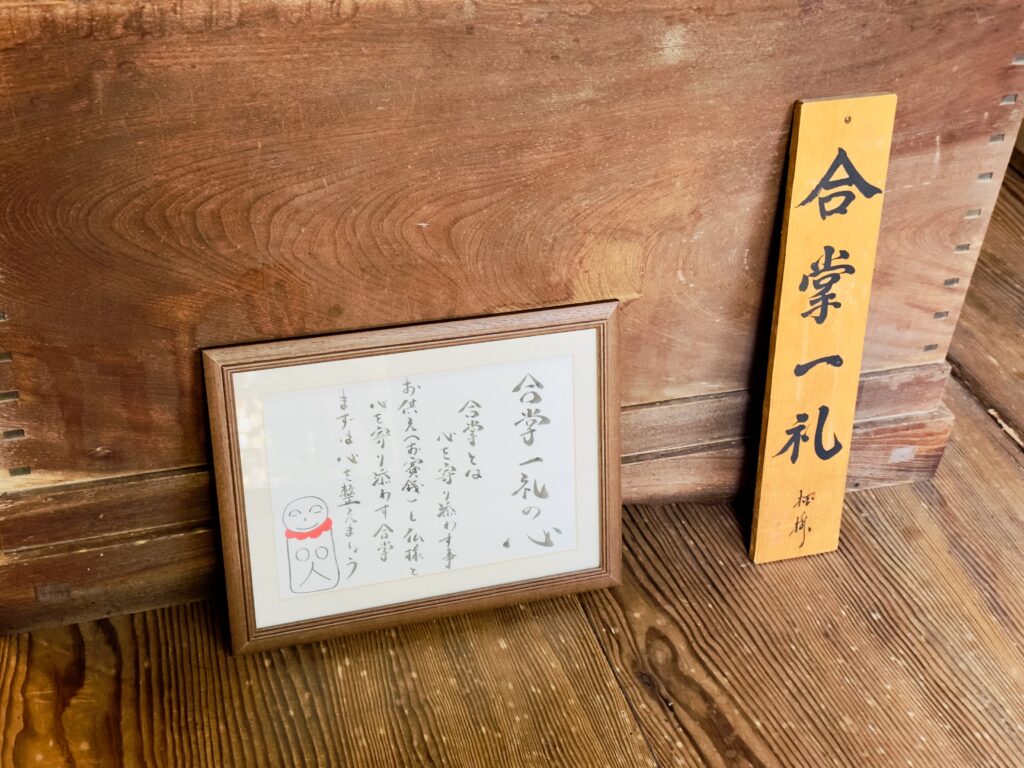 合掌一礼
合掌一礼の心
合掌とは
心を寄り添わす事
お供え(お賽銭)し仏様と
心を寄り添わす合掌
まずは心を整えましょう